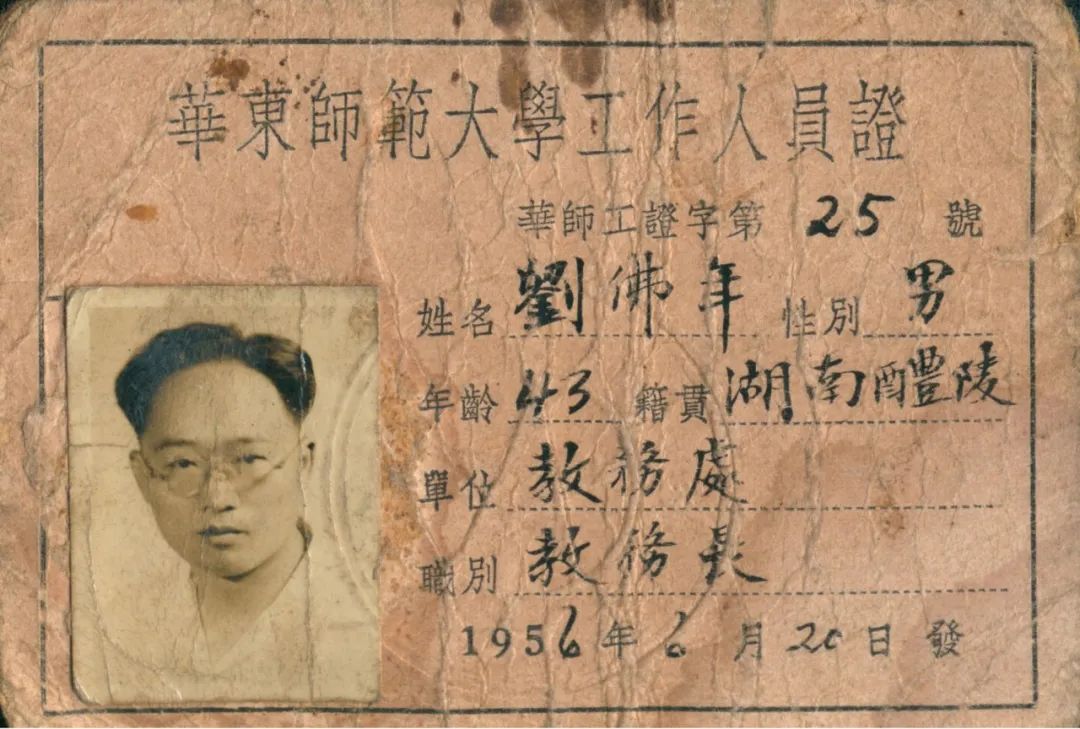 華東師範大學工作人員證
華師工證字第 25 號
姓名 劉佛年 性別 男
年齡 43 籍貫 湖南醴陵
單位 教務處
職別 教務長
1956年6月20日發